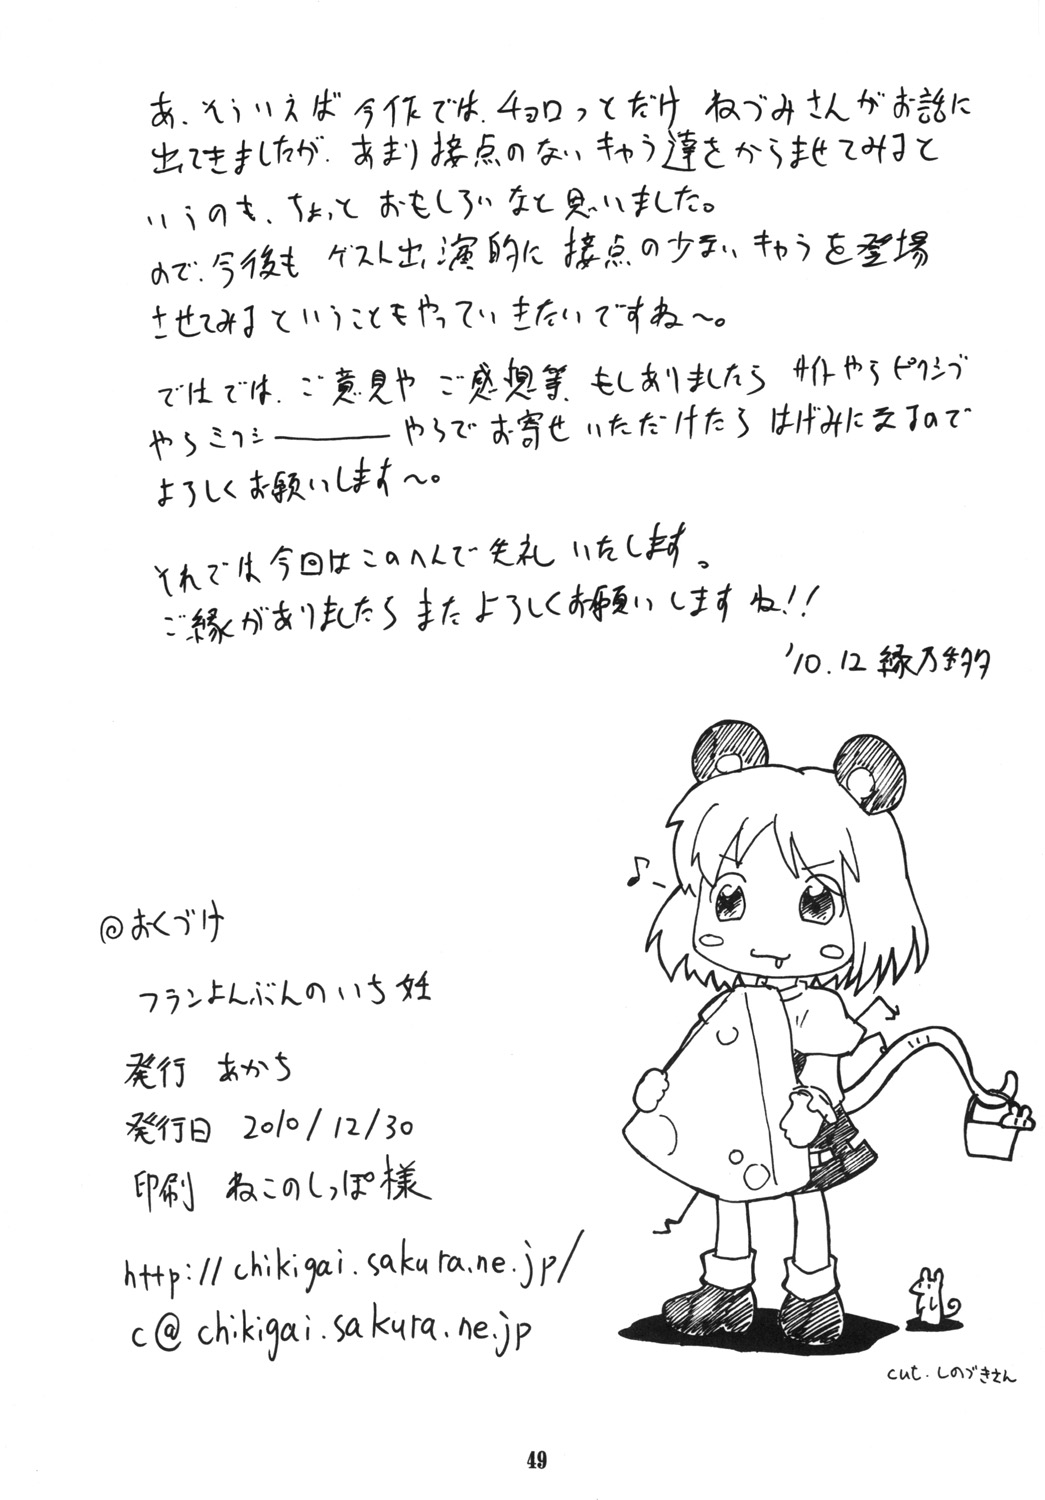 あ、そういえば今作では、チョロっとだけ ねづみさんがお話に
出てきましたが、あまり接点のないキャラ達をからませてみると
いうのも、ちょっと おもしろいなと思いました。
ので、今後も ゲスト出演的に 接点の少ないキャラを登場
させてみる ということもやっていきたいですね〜。
ではでは、ご意見や ご感想等、もしありましたら サイトやらピクシブ
やらミクシ――――やらで お寄せいただけたら はげみになるので
よろしくお願いします〜。
それでは今回はこのへんで失礼いたします。
ご縁がありましたら またよろしくお願いしますね!!
'10.12 縁乃
@おくづけ
フランよんぶんのいち 妊
発行 あかち
発行日 2010/12/30
印刷 ねこのしっぽ様
http://chikigai.sakura.ne.jp/
c@chikigai.sakura.ne.jp
♪
cut. しのづきさん
49